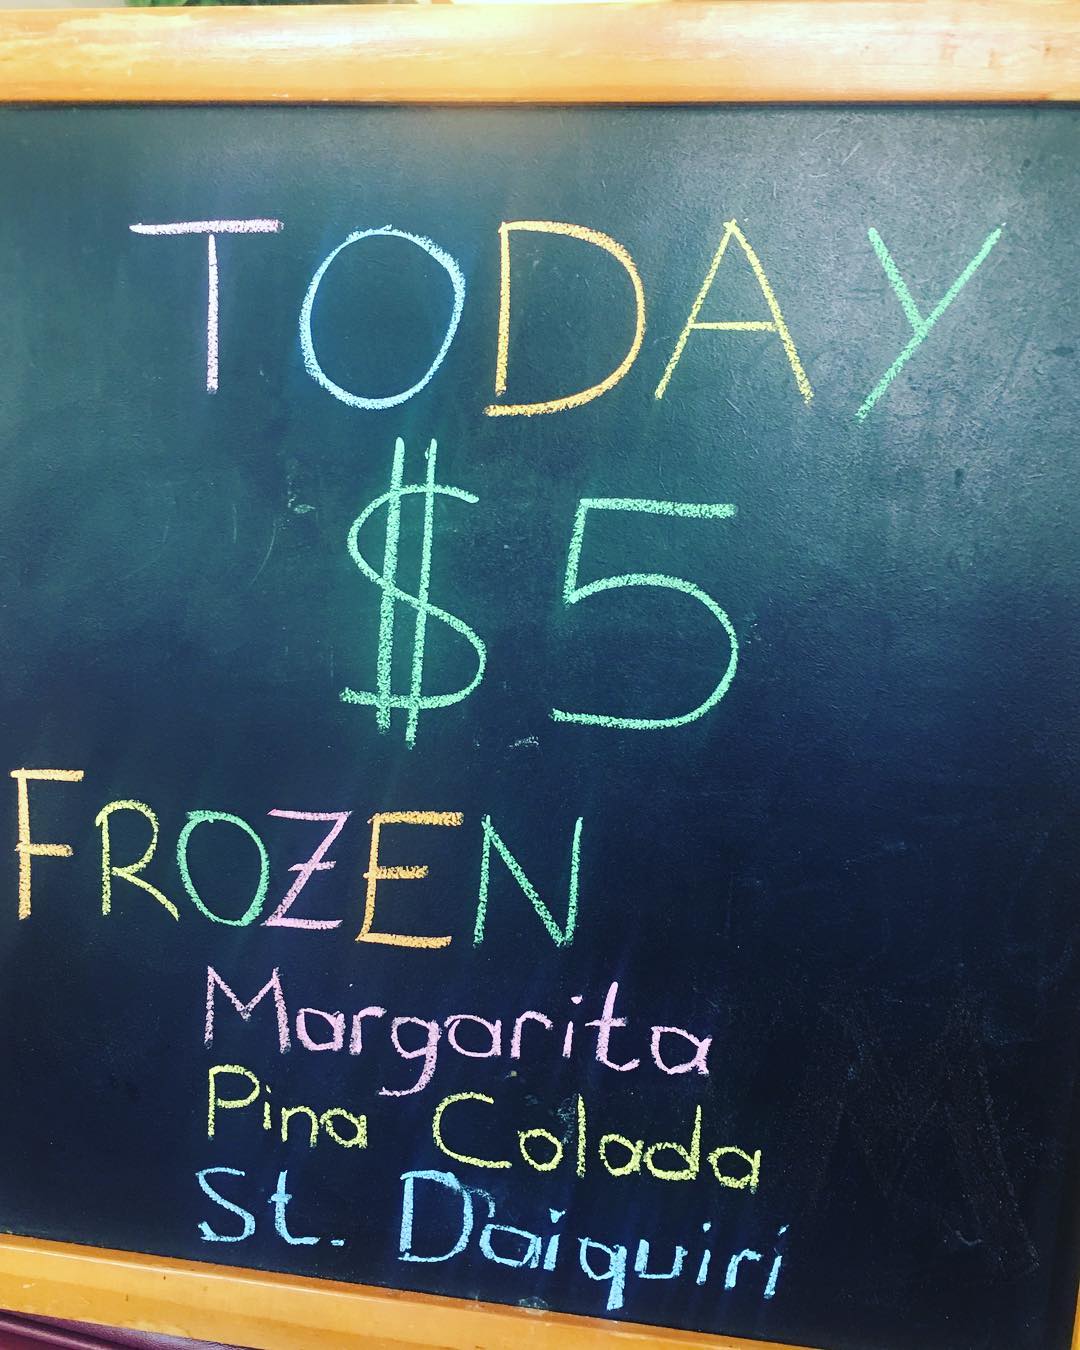 TODAY
$5
FROZEN
Margarita
Pina Colada
St. Daiquiri